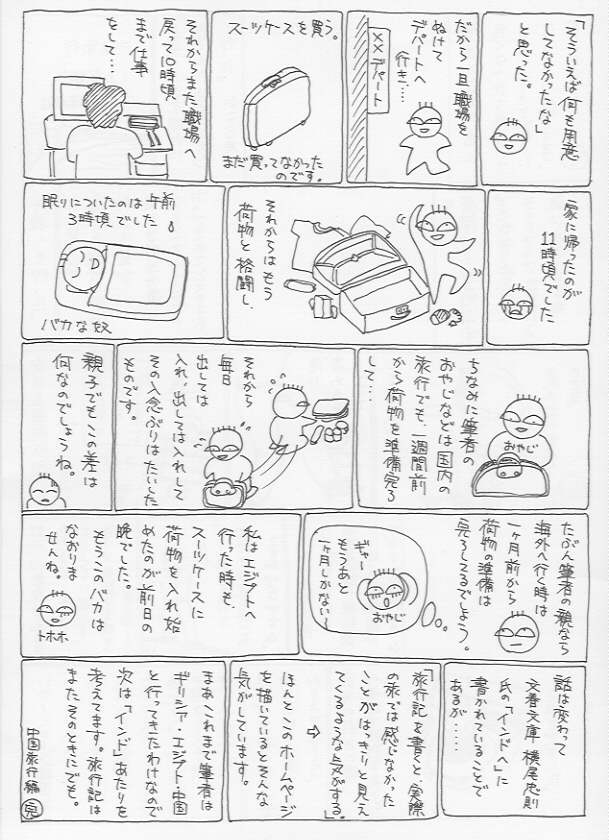 「そういえば何も用意
してなかったな」
と思った。
だから一旦職場を
ぬけて
デパートへ
行き…
××デパート
スーツケースを買う。
まだ買ってなかった
のです。
それからまた職場へ
戻って10時頃
まで仕事
をして…
家に帰ったのが
11時頃でした
それからはもう
荷物と格闘し、
眠りについたのは午前
3時頃でした
バカな奴
ちなみに筆者の
おやじなどは国内の
旅行でも、一週間前
から荷物を準備完了
して…
おやじ
それから
毎日
出しては
入れ、出しては入れして
その入念ぶりはたいした
ものです。
親子でもこの差は
何なのでしょうね。
たぶん筆者の親なら
海外へ行く時は
一ヶ月前から
荷物の準備は
完了してるでしょう。
ギャー
もうあと
一ヶ月しかない〜
おやじ
私はエジプトへ
行った時も、
スーツケースに
荷物を入れ始
めたのが前日の
晩でした。
もうこのバカは
なおりま
せんね。
トホホ
話は変わって
文春文庫 横尾忠則
氏の「インドへ」に
書かれていることで
あるが……
「旅行記を書くと、実際
の旅では感じなかった
ことがはっきりと見え
てくるような気がする。」
⇨
ほんとこのホームページ
を描いているとそんな
気がしています。
まあこれまで筆者は
ギリシャ・エジプト・中国
と行ってきたわけなので
次は「インド」あたりを
考えてます。旅行記は
またそのときにでも。
中国旅行編 完